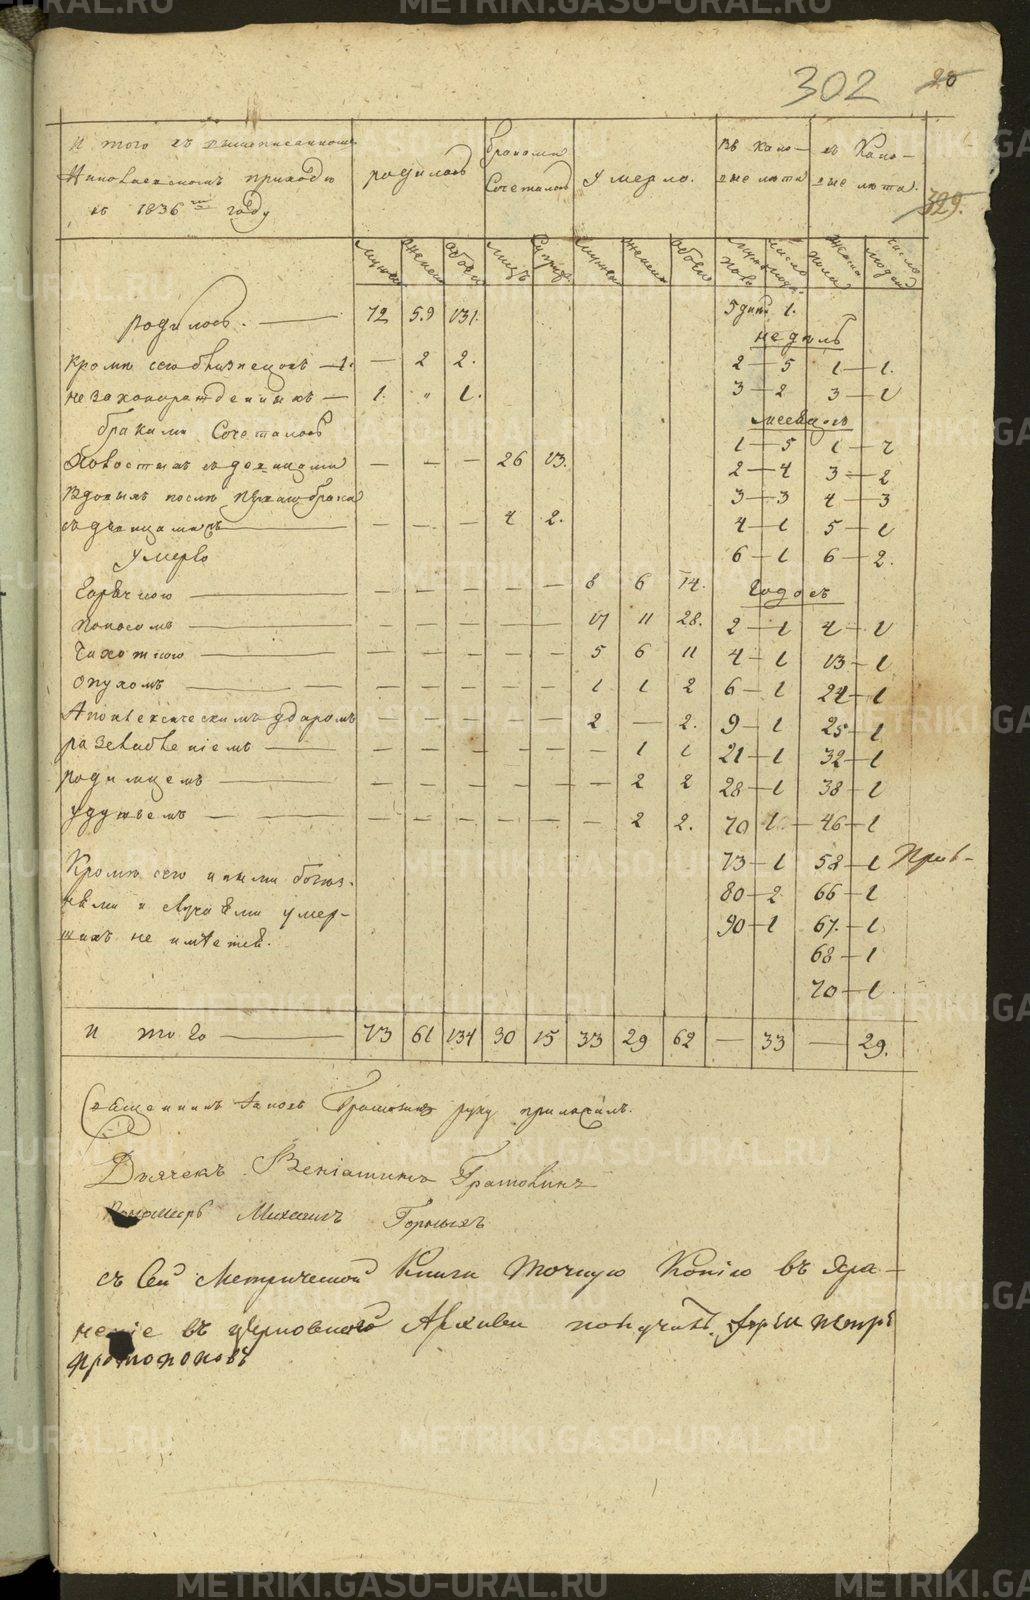 302
28
329.
И того въ вышеписанномъ
приходѣ
въ 1836мъ году
родилось
браками
Сочеталось
умерло.
въ кото-
рые лѣта
въ Кото-
рые лѣта.
мужеск женск обоего лицъ мужеск женск обоего мужеска пола число людей женска пола число людей
родилось. — 72 59 131. 5 дней 1.
недѣль
Кромѣ сего близнецовъ — 1. — 2 2. 2 — 5 1 — 1.
незаконорожденныхъ — 1. „ 1. 3 — 2 3 — 1
браками Сочеталось
месяцовъ
1 — 5 1 — 2
Холостыхъ съ девицами — — — 26 13. 2 — 4 3 — 2
Вдовыхъ послѣ перваго брака 3 — 3 4 — 3
съ девицами — — — — 4 2. 4 — 1 5 — 1
умерло 6 — 1 6 — 2.
Горячкою — — — — — — 8 6 14. Годовъ
поносомъ — — — — — — 17 11 28. 2 — 1 4 — 1
Чахоткою — — — — — — 5 6 11 4 — 1 13 — 1
опухомъ — — — — — — 1 1 2 6 — 1 24 — 1
Апоплексическимъ ударомъ — — — — — 2 — 2. 9 — 1 25 — 1
разслабленіемъ — — — — — — — 1 1 21 — 1 32 — 1
родимцемъ — — — — — — — 2 2 28 — 1 38 — 1
удушьемъ — — — — — — — 2 2. 70 1. — 46 — 1
73 — 1 58 — 1
Кромѣ сего иными болез-
нями и случаями умер-
шихъ не имѣется.
80 — 2 66 — 1
90 — 1 67. — 1
68 — 1
70 — 1
И того — 73 61 134 30 15 33 29 62 — 33 — 29.
Священникъ руку приложилъ.
Дьячекъ Веніаминъ
Пономарь Михаилъ Горныхъ
съ сей Метрической Книги точную Копію въ хра-
неніе въ церковного Архива получилъ
Протопоповъ
METRIKI.GASO-URAL.RU